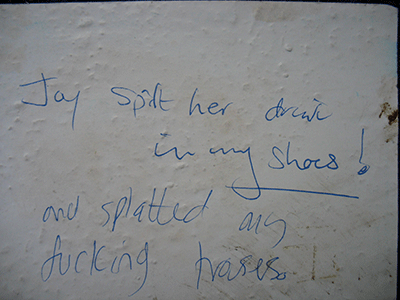 Jay spilt her drink
in my shoes!
and splatted my
fucking trases.